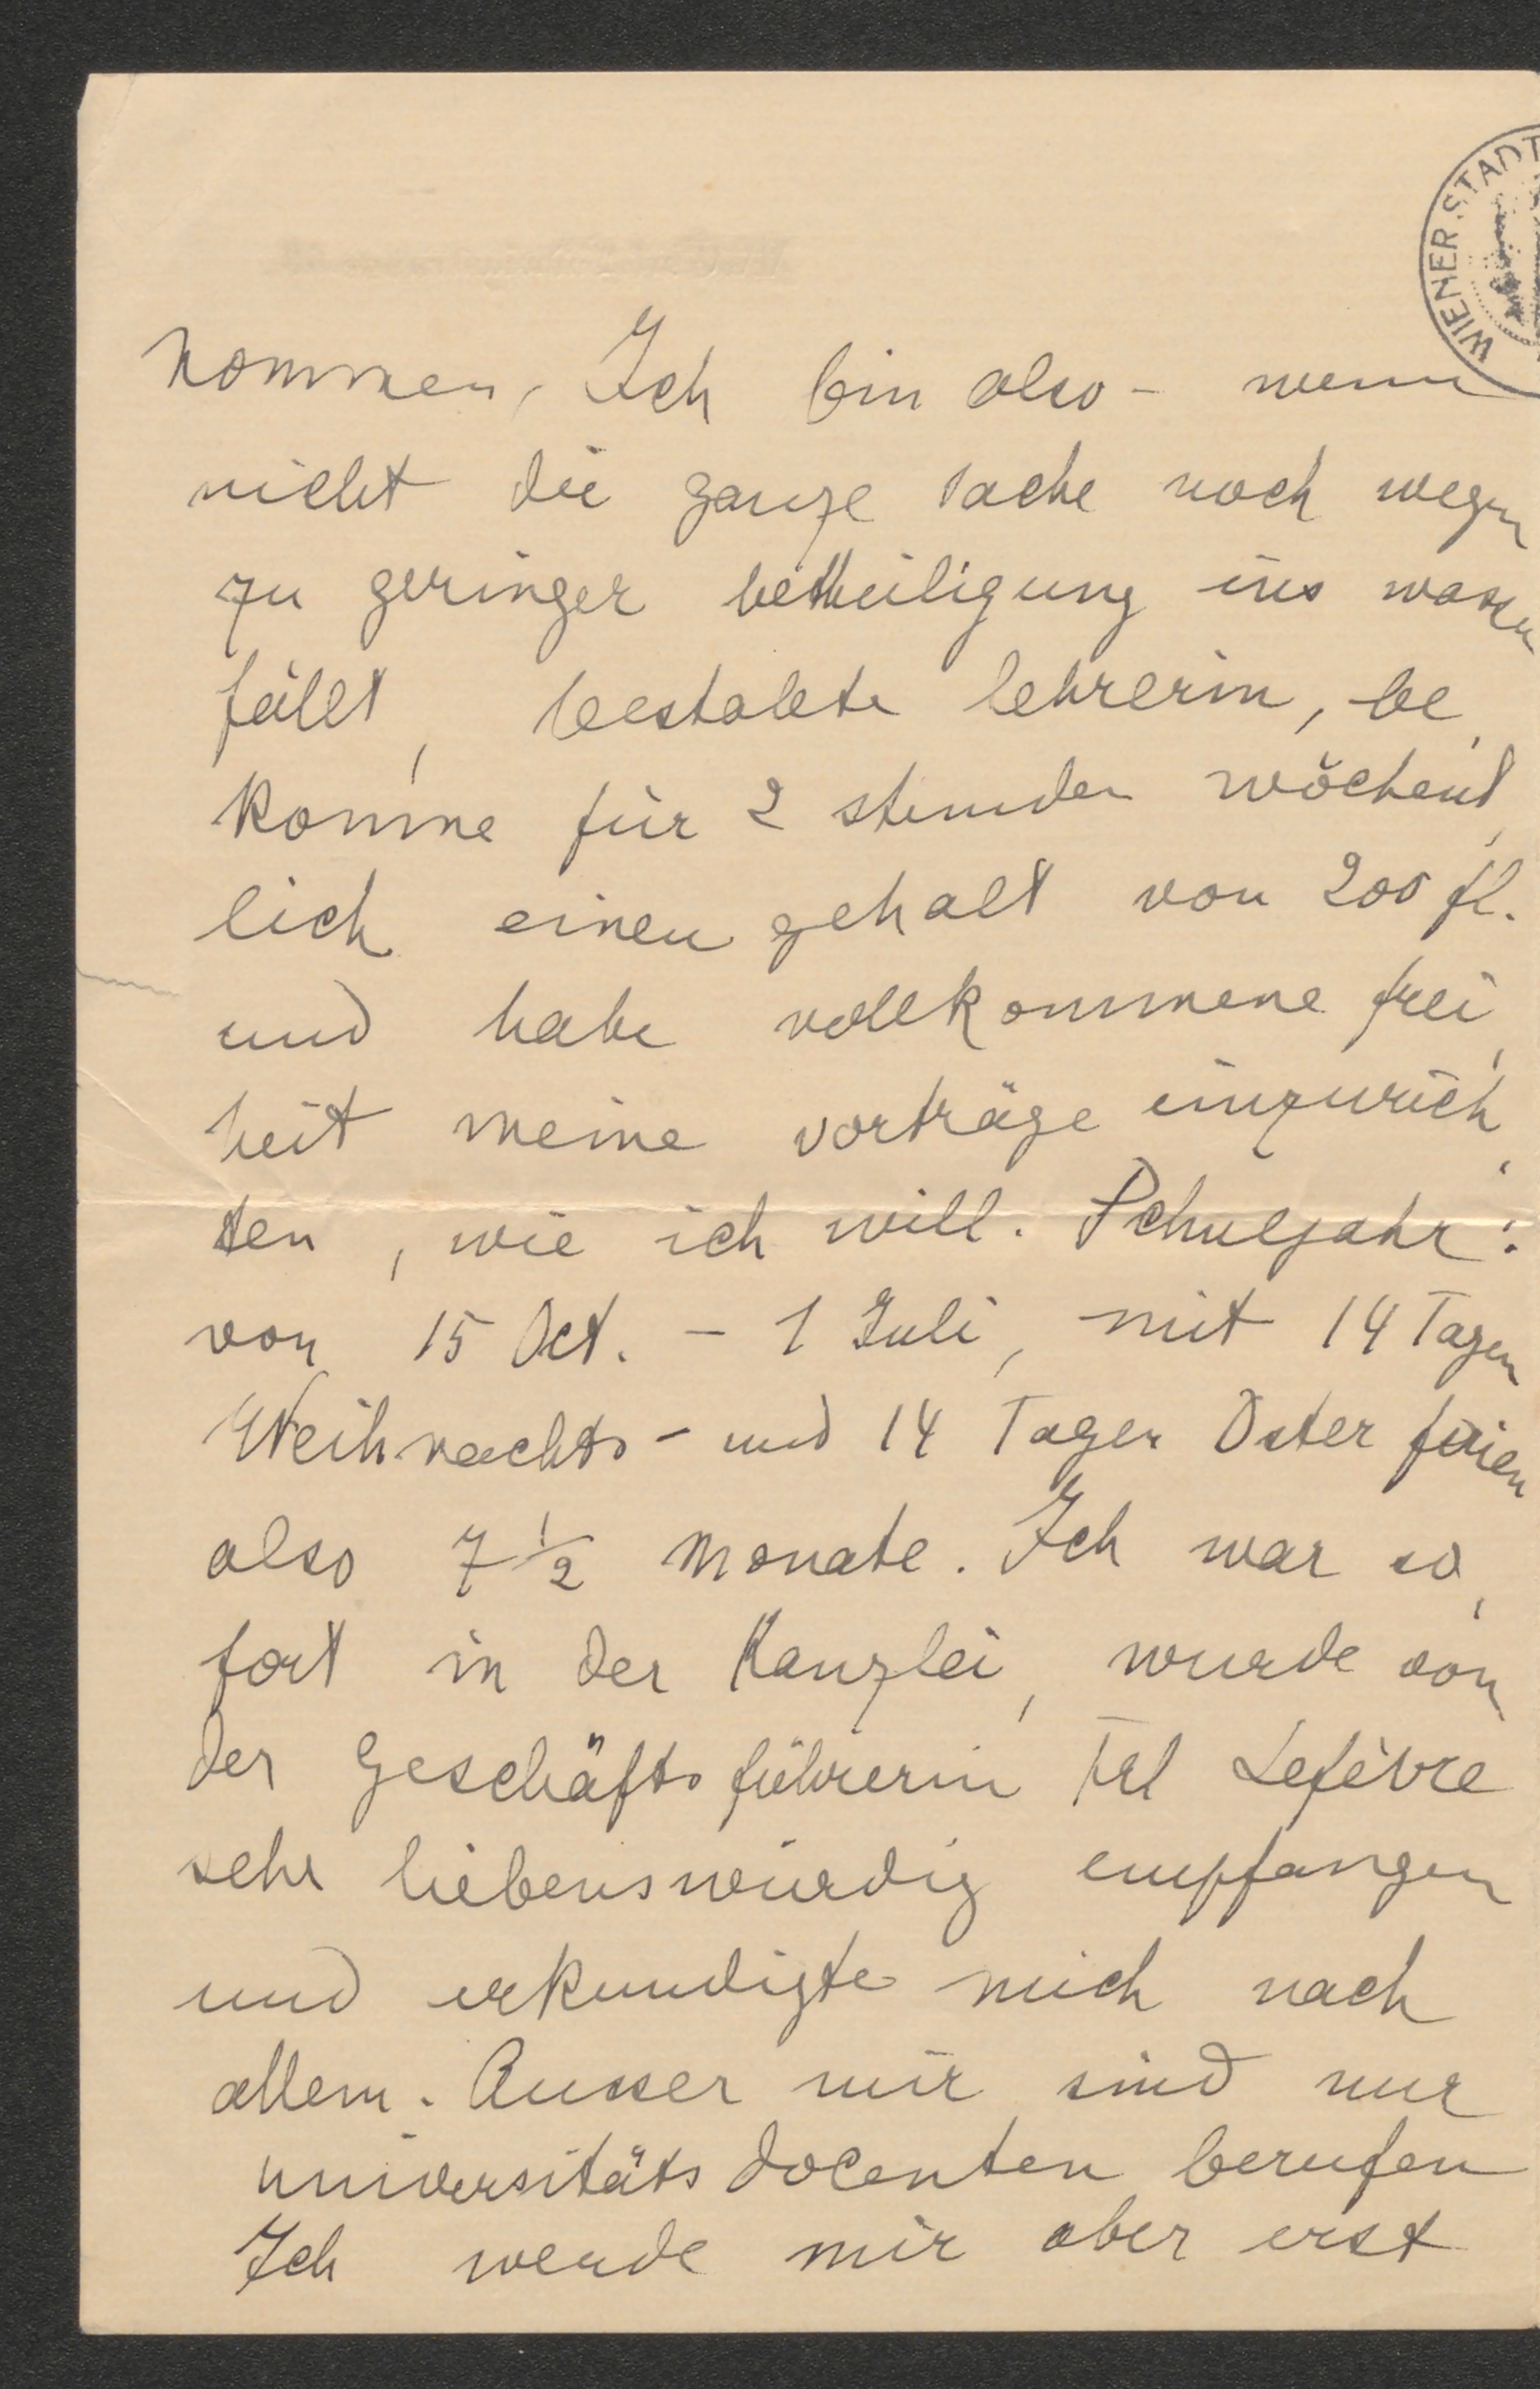 WIENER STADT
kommen, Ich bin also - wenn
nicht die ganze sache noch wegen
zu geringer betheiligung ins wasser
fällt, bestallte lehrerin, be,
komme für 2 stunden wöchent,
lich einen gehalt von 200 fl.
und habe vollkommene frei,
heit meine vorträge einzurich,
ten, wie ich will. Schuljahr:
von 15 Oct. - 1 Juli, mit 14 Tagen
Weihnachts - und 14 Tagen Oster ferien
also 7 1/2 monate. Ich war so,
fort in der Kanzlei, wurde von
der Geschäftsführerin Frl Lefèvre
sehr liebenswürdig empfangen
und erkundigte mich nach
allem. Ausser mir sind nur
universitäts docenten berufen
Ich werde mir aber erst